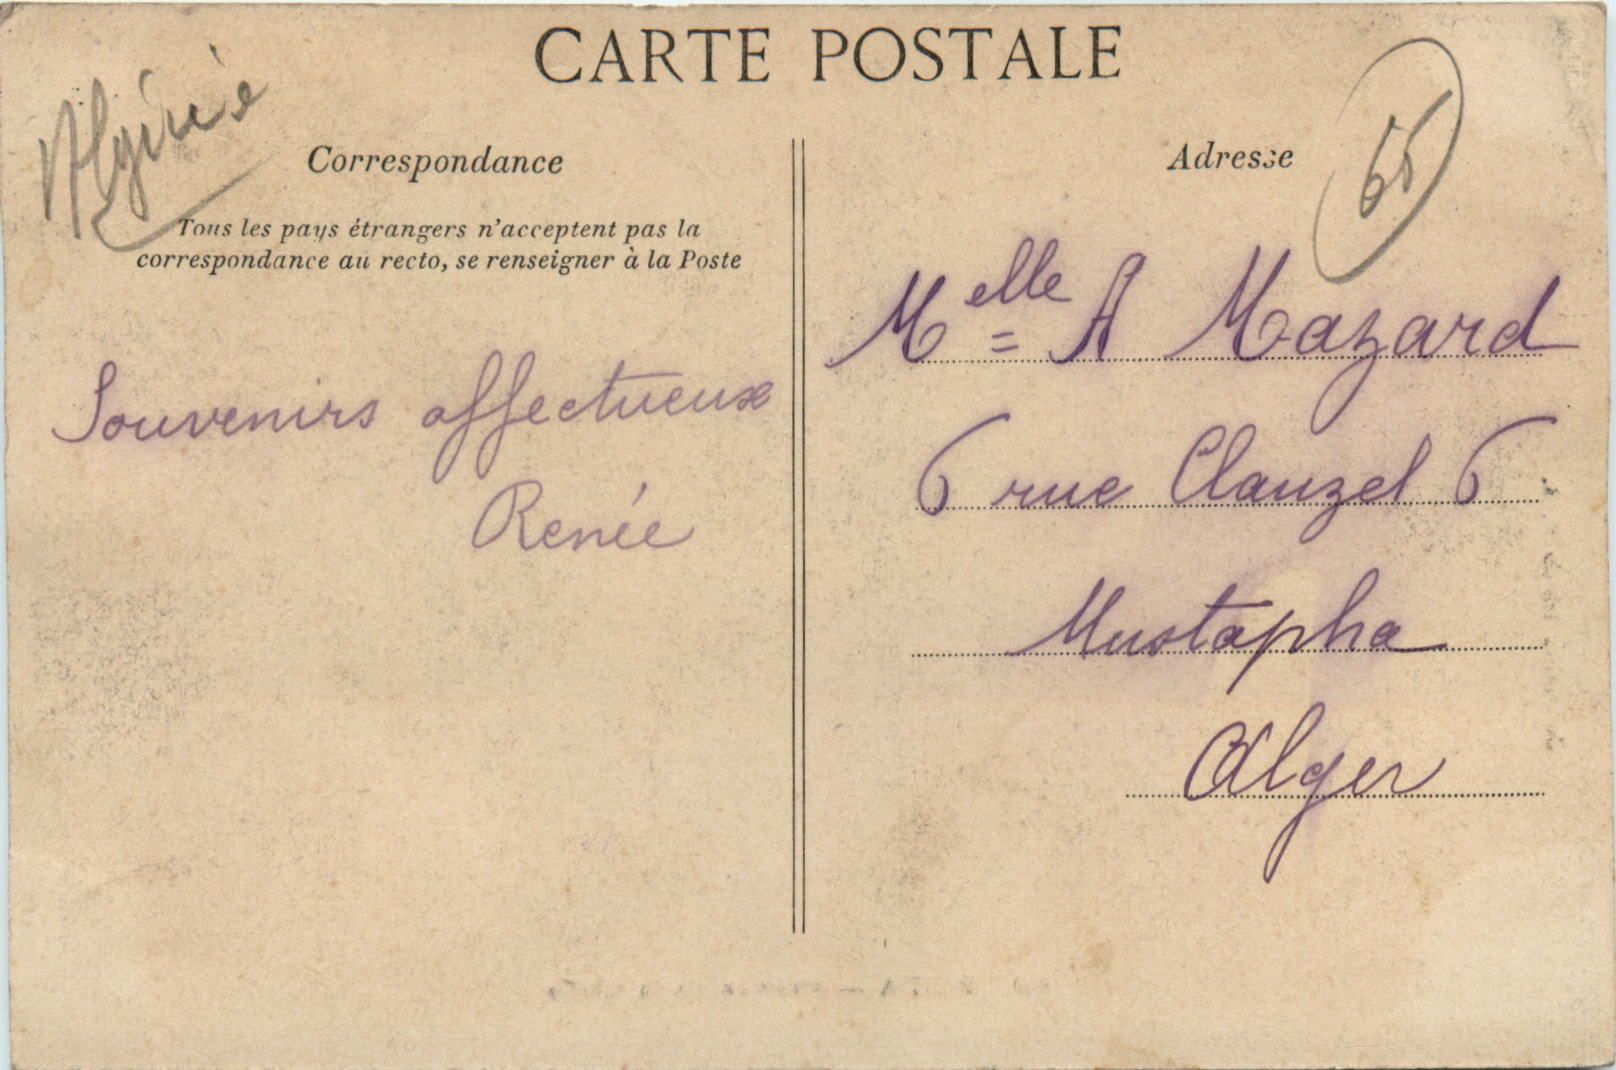 CARTE POSTALE
Algérie
Correspondance
Tous les pays étrangers n'acceptent pas la
correspondance au recto, se renseigner à la Poste
Souvenirs affectueux
Renée
Adresse
65
Melle A Mazard
6 rue Clauzel 6
Mustapha
Alger